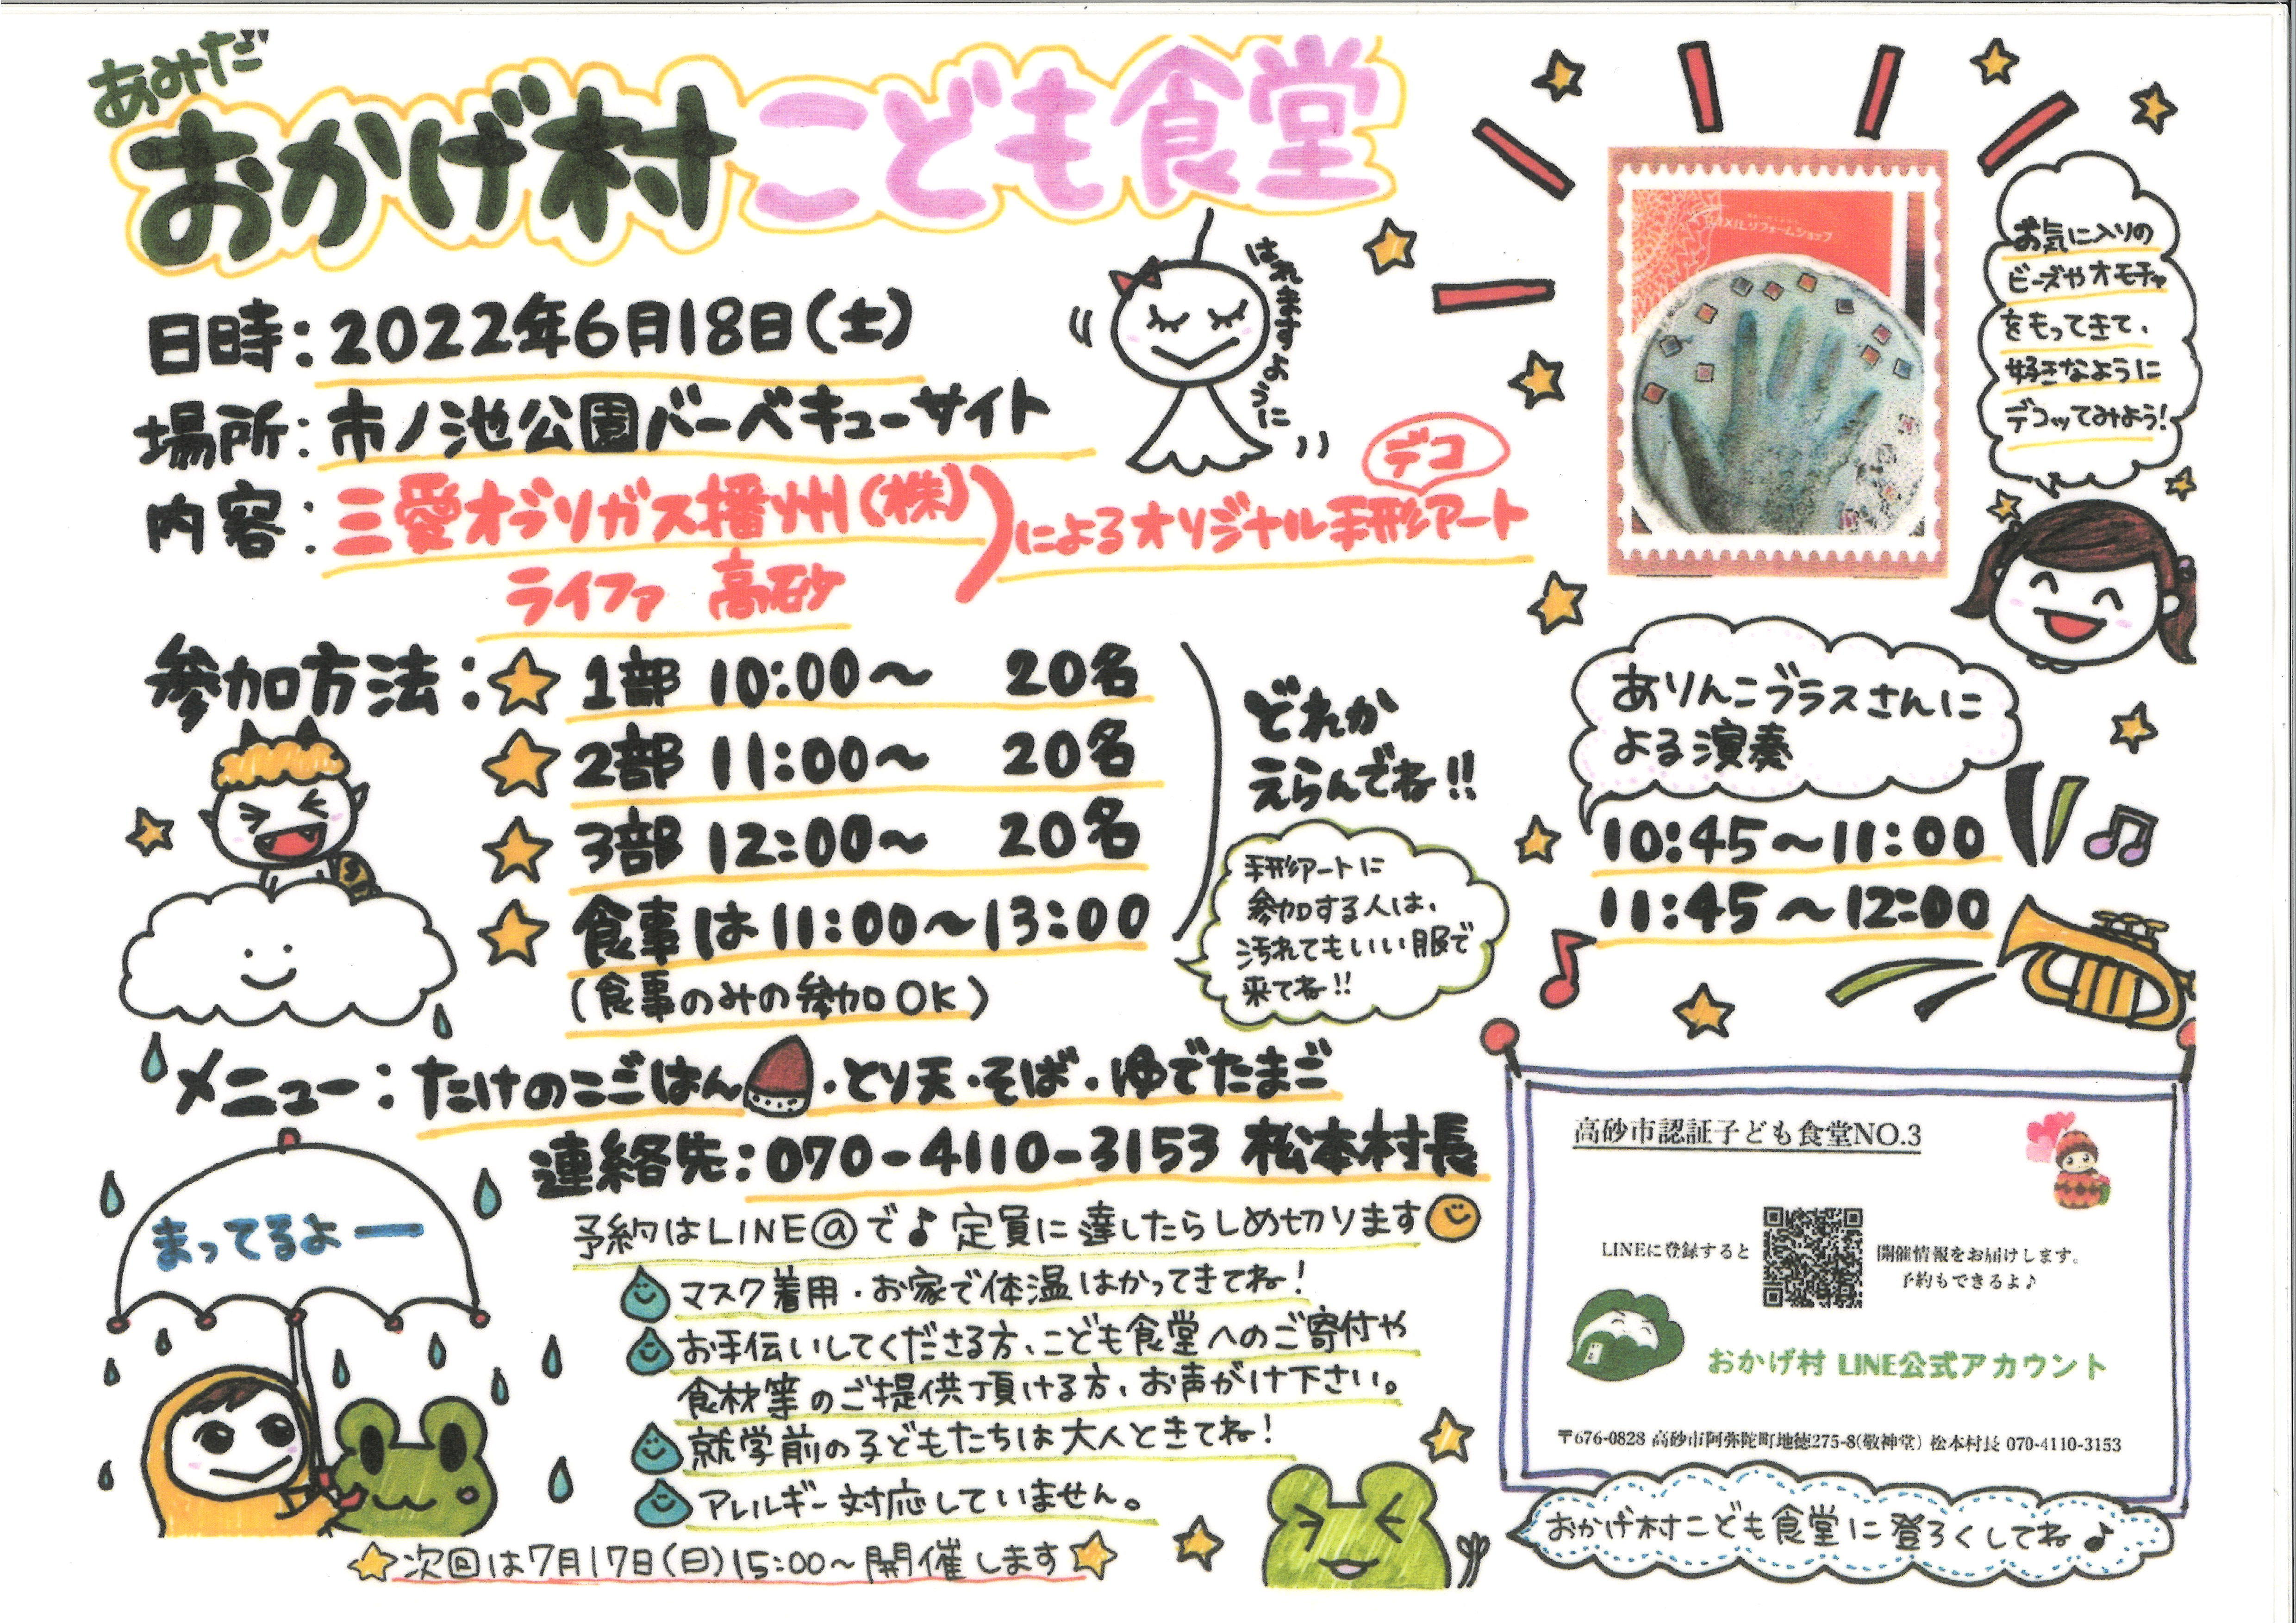 あみだ
おかげ村こども食堂
日時：2022年6月18日（土）
場所：市ノ池公園バーベキューサイト
内容：三愛オブリガス播州（株）
ライファ 高砂
によるオリジナル手形アート
デコ
はれますように
お気に入りの
ビーズやオモチャ
をもってきて、
好きなように
デコッてみよう！
LIXILリフォームショップ
参加方法：☆1部 10:00〜 20名
☆2部 11:00〜 20名
☆3部 12:00〜 20名
☆食事は11:00〜13:00
（食事のみの参加OK）
どれか
えらんでね!!
手形アートに
参加する人は、
汚れてもいい服で
来てね!!
ありんこブラスさんに
よる演奏
10:45〜11:00
11:45〜12:00
メニュー：たけのこごはん・とり天・そば・ゆでたまご
連絡先：070-4110-3153 松本村長
まってるよー
予約はLINE@で♪定員に達したらしめ切ります
マスク着用・お家で体温はかってきてね！
お手伝いしてくださる方、こども食堂へのご寄付や
食材等のご提供頂ける方、お声がけ下さい。
就学前の子どもたちは大人ときてね！
アレルギー対応していません。
☆次回は7月17日（日）15:00〜開催します☆
高砂市認証子ども食堂NO.3
LINEに登録すると
開催情報をお届けします。
予約もできるよ♪
おかげ村 LINE公式アカウント
〒676-0828 高砂市阿弥陀町地徳275-8(敬神堂) 松本村長 070-4110-3153
おかげ村こども食堂に登ろくしてね♪